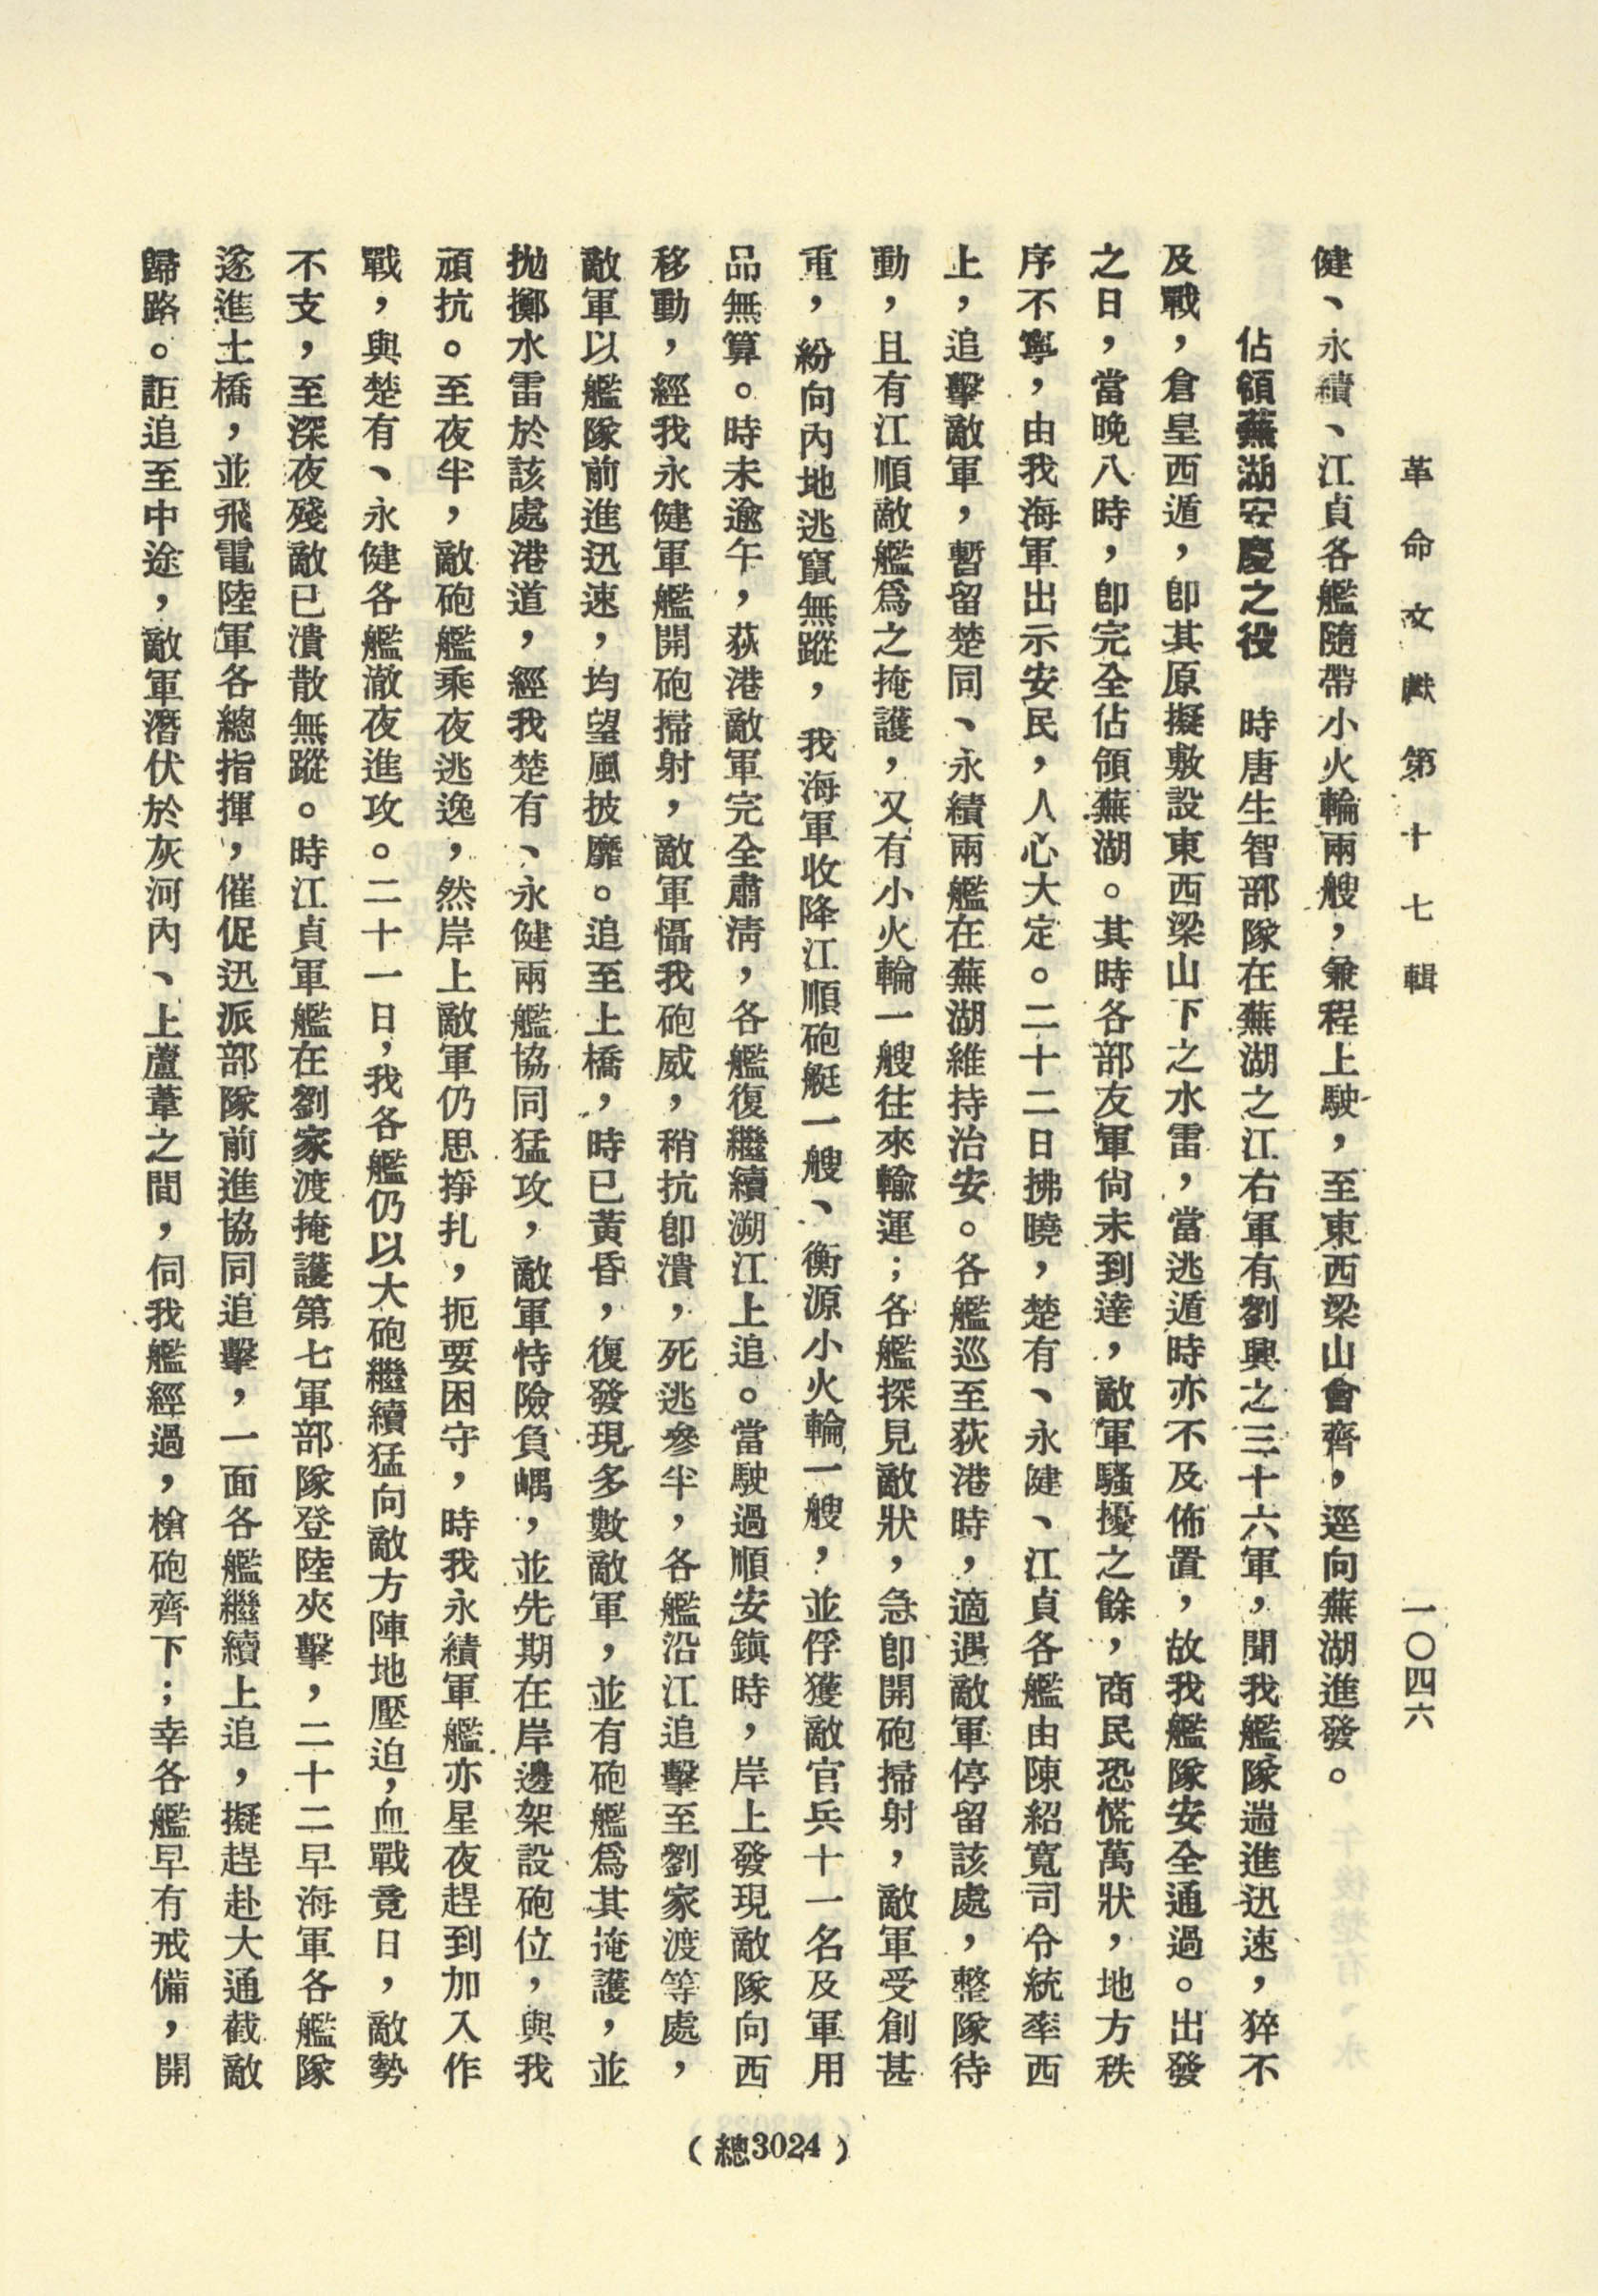 革命文獻第十七輯
一〇四六
健、永績、江貞各艦隨帶小火輪兩艘，兼程上駛，至東西梁山會齊，逕向蕪湖進發。
佔領蕪湖安慶之役　時唐生智部隊在蕪湖之江右軍有劉興之三十六軍，聞我艦隊遄進迅速，猝不
及戰，倉皇西遁，卽其原擬敷設東西梁山下之水雷，當逃遁時亦不及佈置，故我艦隊安全通過。出發
之日，當晚八時，卽完全佔領蕪湖。其時各部友軍尙未到達，敵軍騷擾之餘，商民恐慌萬狀，地方秩
序不寧，由我海軍出示安民，人心大定。二十二日拂曉，楚有、永健、江貞各艦由陳紹寬司令統率西
上，追擊敵軍，暫留楚同、永績兩艦在蕪湖維持治安。各艦巡至荻港時，適遇敵軍停留該處，整隊待
動，且有江順敵艦爲之掩護，又有小火輪一艘往來輸運；各艦探見敵狀，急卽開砲掃射，敵軍受創甚
重，紛向內地逃竄無蹤，我海軍收降江順砲艇一艘、衡源小火輪一艘，並俘獲敵官兵十一名及軍用
品無算。時未逾午，荻港敵軍完全肅淸，各艦復繼續溯江上追。當駛過順安鎮時，岸上發現敵隊向西
移動，經我永健軍艦開砲掃射，敵軍懾我砲威，稍抗卽潰，死逃參半，各艦沿江追擊至劉家渡等處，
敵軍以艦隊前進迅速，均望風披靡。追至上橋，時已黃昏，復發現多數敵軍，並有砲艦爲其掩護，並
拋擲水雷於該處港道，經我楚有、永健兩艦協同猛攻，敵軍恃險負嵎，並先期在岸邊架設砲位，與我
頑抗。至夜半，敵砲艦乘夜逃逸，然岸上敵軍仍思掙扎，扼要困守，時我永績軍艦亦星夜趕到加入作
戰，與楚有、永健各艦澈夜進攻。二十一日，我各艦仍以大砲繼續猛向敵方陣地壓迫，血戰竟日，敵勢
不支，至深夜殘敵已潰散無蹤。時江貞軍艦在劉家渡掩護第七軍部隊登陸夾擊，二十二早海軍各艦隊
遂進土橋，並飛電陸軍各總指揮，催促迅派部隊前進協同追擊，一面各艦繼續上追，擬趕赴大通截敵
歸路。詎追至中途，敵軍潛伏於灰河內、上蘆葦之間，伺我艦經過，槍砲齊下；幸各艦早有戒備，開
（總3024）